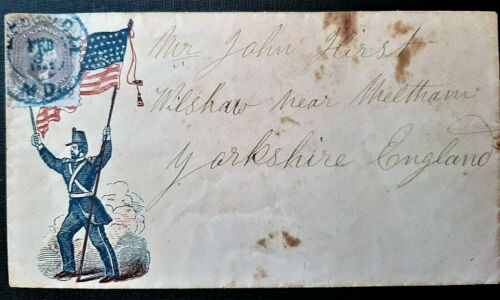 FEB
MD.
Mr John Hirst
Wilshaw near Meltham
Yorkshire England